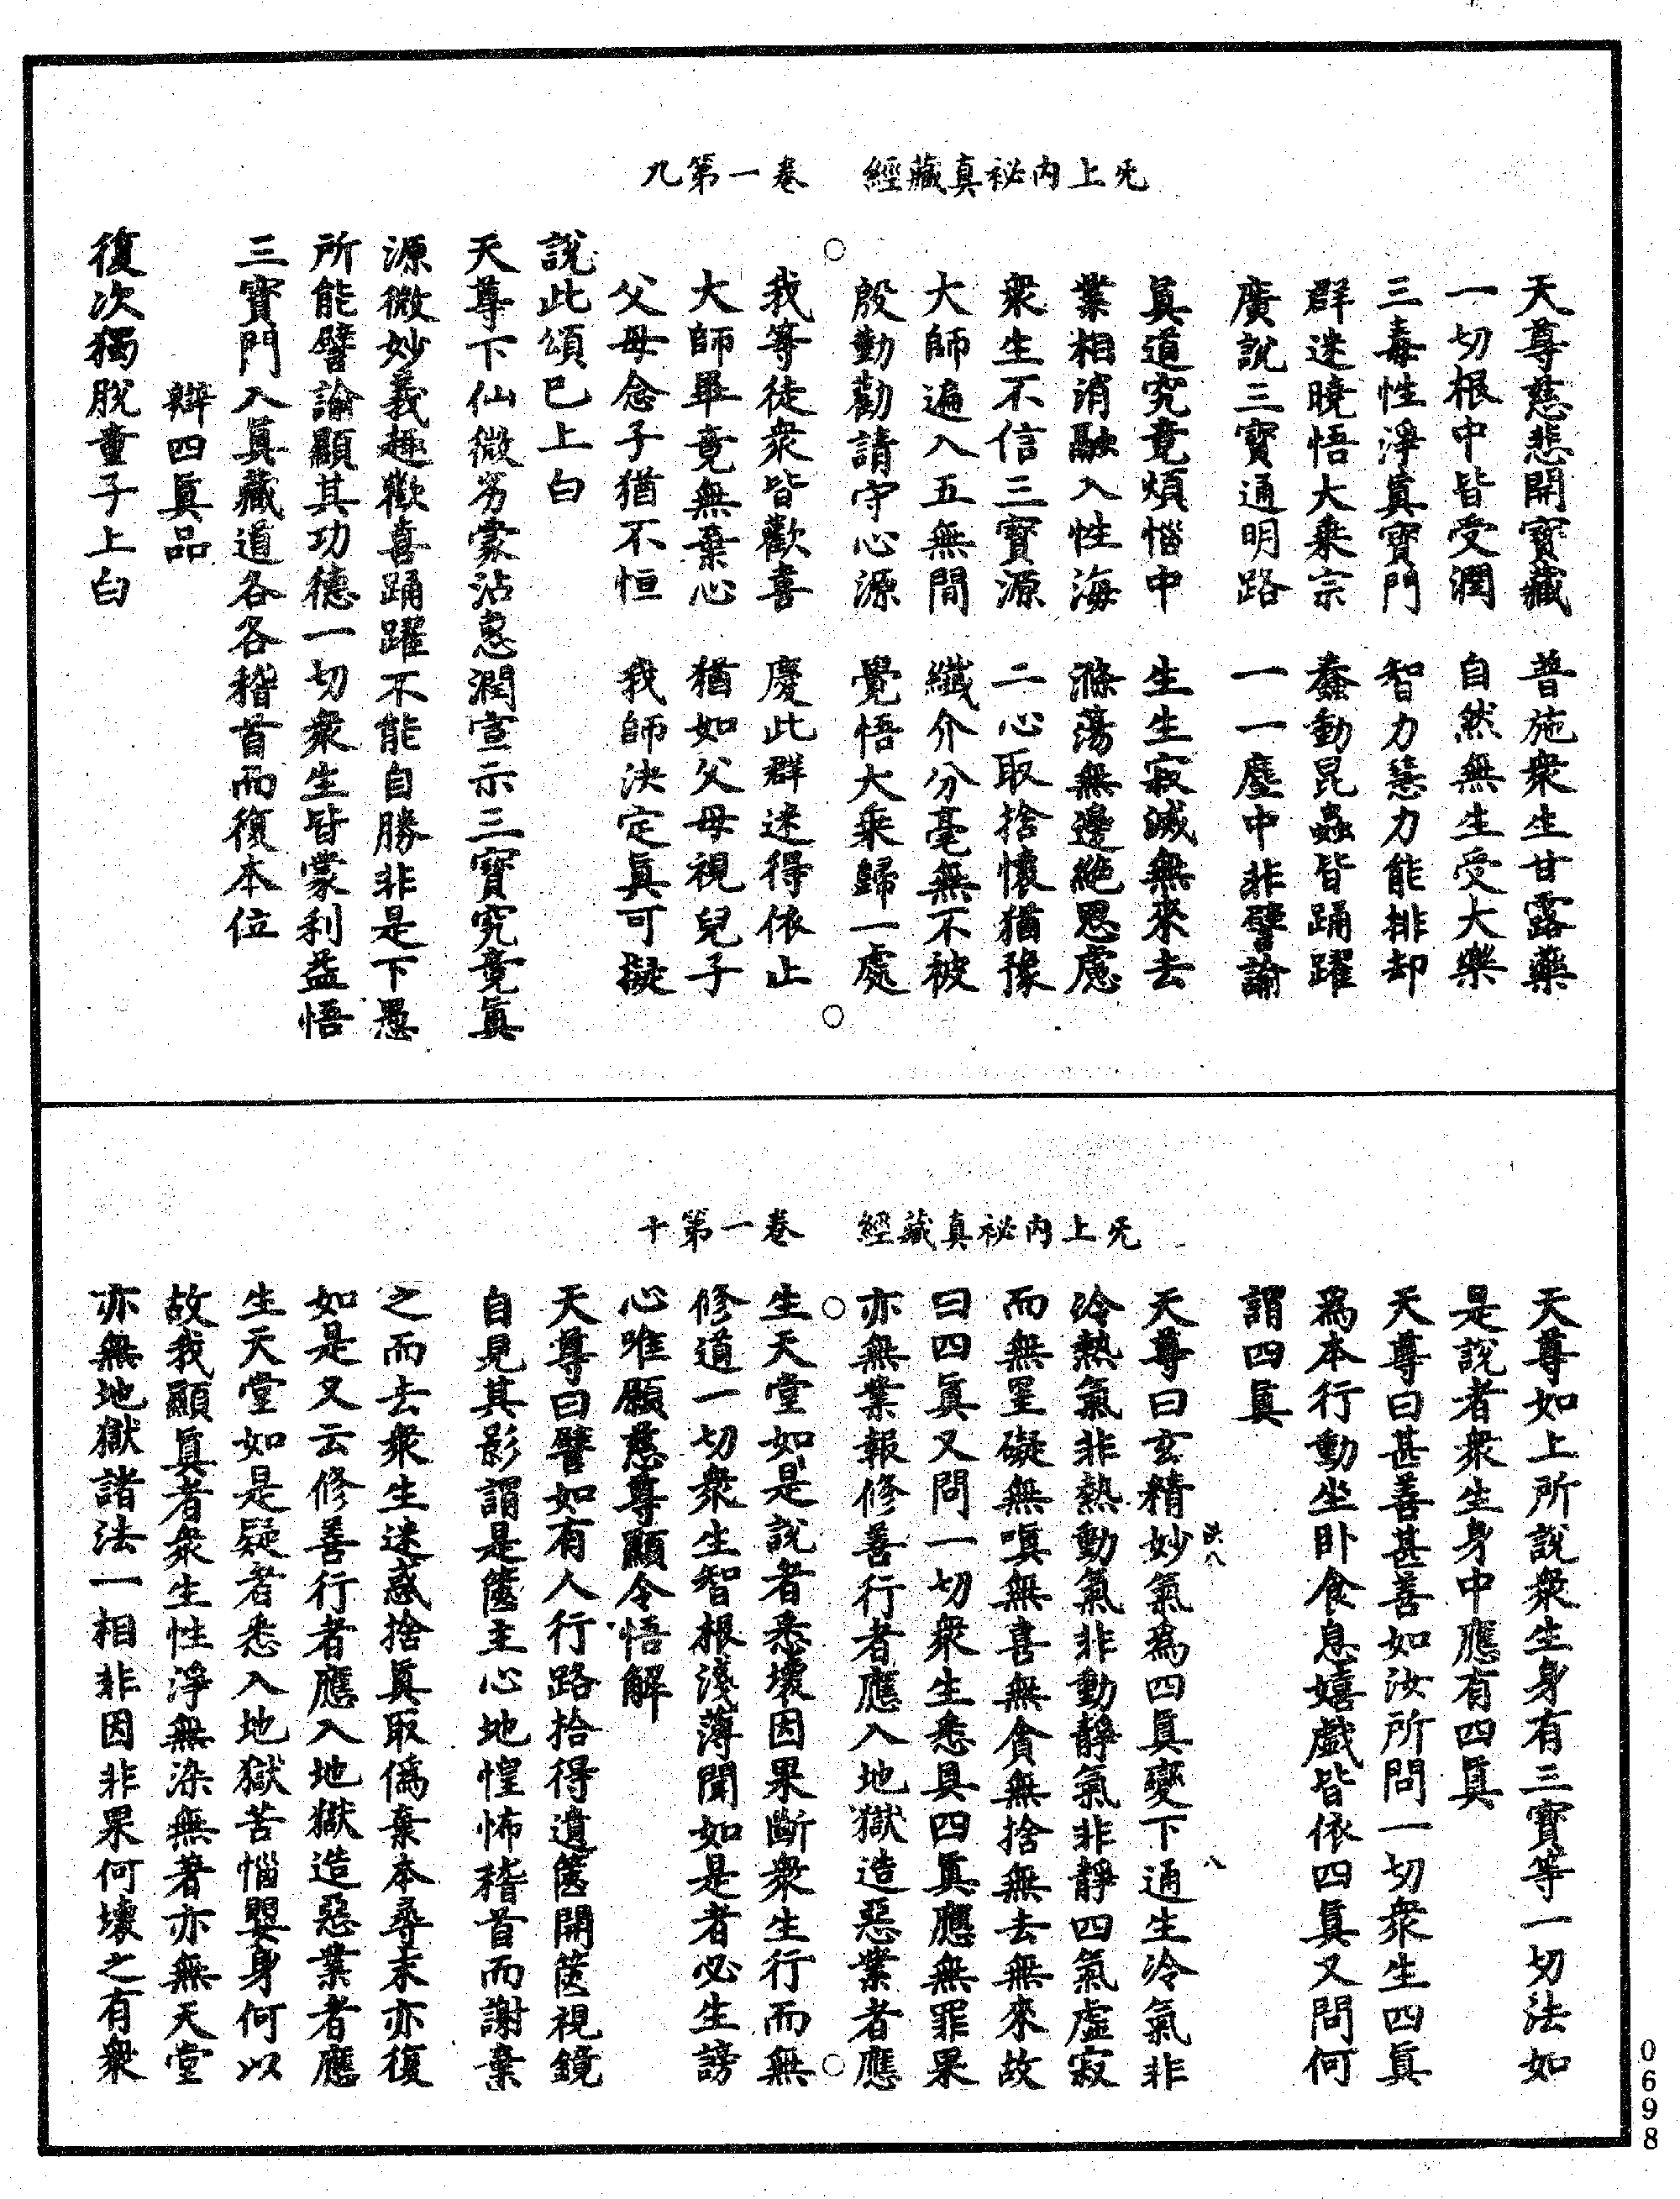 无上內祕真藏經　卷一第九
天尊慈悲開寶藏　普施衆生甘露藥
一切根中皆受潤　自然無生受大樂
三毒性淨眞寶門　智力慧力能排却
群迷曉悟大乗宗　蠢動昆蟲皆踊躍
廣說三寶通明路　一一塵中非譬諭
眞道究竟煩惱中　生生寂滅無來去
業相消融入性海　滌蕩無邊絕思慮
衆生不信三寶源　二心取捨懷猶豫
大師遍入五無間　纖介分毫無不被
殷勤勸請守心源　覺悟大乗歸一處
我等徒衆皆歡喜　慶此群迷得依止
大師畢竟無棄心　猶如父母視兒子
父母念子猶不恒　我師決定眞可擬
說此頌已上白
天尊下仙微劣蒙沾惠潤宣示三寶究竟眞
源微妙義趣歡喜踊躍不能自勝非是下愚
所能譬諭顯其功德一切衆生皆蒙利益悟
三寶門入眞藏道各各稽首而復本位
辯四眞品
復次獨脫童子上白
无上內祕真藏經　卷一第十
天尊如上所說衆生身有三寶等一切法如
是說者衆生身中應有四眞
天尊曰甚善甚善如汝所問一切衆生四眞
爲本行動坐卧食息嬉戲皆依四眞又問何
謂四眞
天尊曰玄精妙氣爲四眞變下通生冷氣非
冷熱氣非熱動氣非動靜氣非靜四氣虛寂
而無罣礙無嗔無喜無貪無捨無去無來故
曰四眞又問一切衆生悉具四眞應無罪果
亦無業報修善行者應入地獄造惡業者應
生天堂如是說者悉壞因果斷衆生行而無
修道一切衆生智根淺薄聞如是者必生謗
心唯願慈尊顯令悟解
天尊曰譬如有人行路拾得遺篋開篋視鏡
自見其影謂是篋主心地惶怖稽首而謝棄
之而去衆生迷惑捨眞取僞棄本尋末亦復
如是又云修善行者應入地獄造惡業者應
生天堂如是疑者悉入地獄苦惱嬰身何以
故我顯眞者衆生性淨無染無著亦無天堂
亦無地獄諸法一相非因非果何壞之有衆
0698